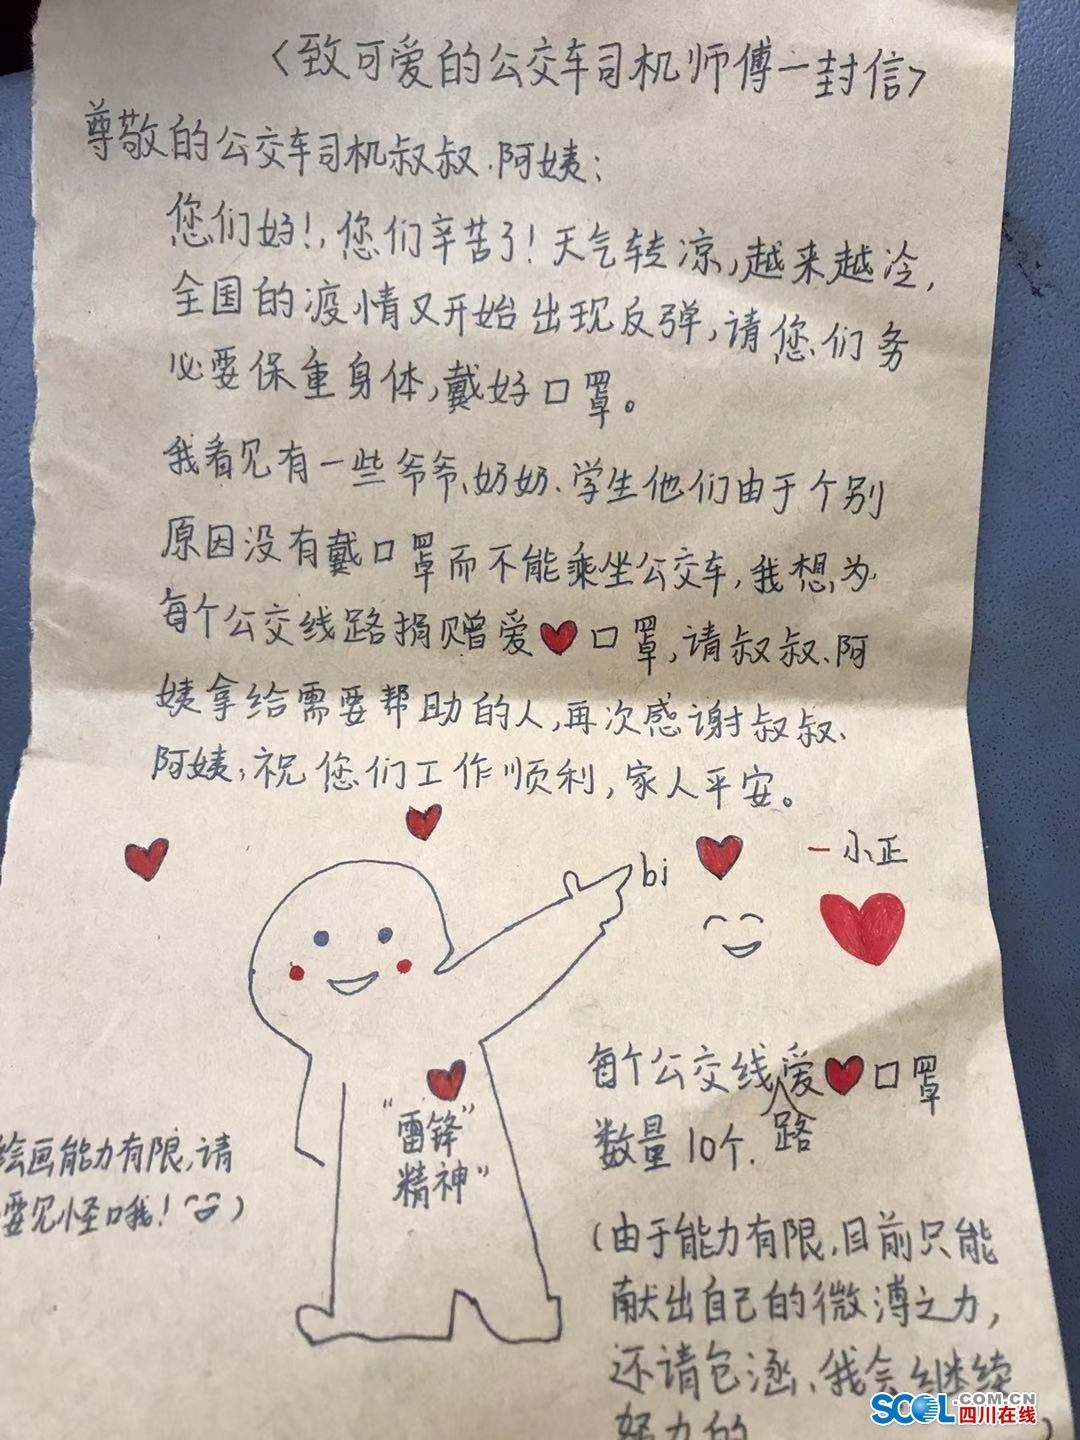 〈致可爱的公交车司机师傅一封信〉
尊敬的公交车司机叔叔、阿姨：
您们好！，您们辛苦了！天气转凉，越来越冷，
全国的疫情又开始出现反弹，请您们务
必要保重身体，戴好口罩。
我看见有一些爷爷、奶奶、学生他们由于个别
原因没有戴口罩而不能乘坐公交车，我想为
每个公交线路捐赠爱❤口罩，请叔叔、阿
姨拿给需要帮助的人，再次感谢叔叔、
阿姨，祝您们工作顺利，家人平安。
—小正
bi
"雷锋"
精神"
绘画能力有限，请
要见怪哦！)
每个公交线路爱❤口罩
数量10个.
(由于能力有限，目前只能
献出自己的微溥之力，
还请包涵、我会继续
努力的
)
SCOL.COM.CN
四川在线